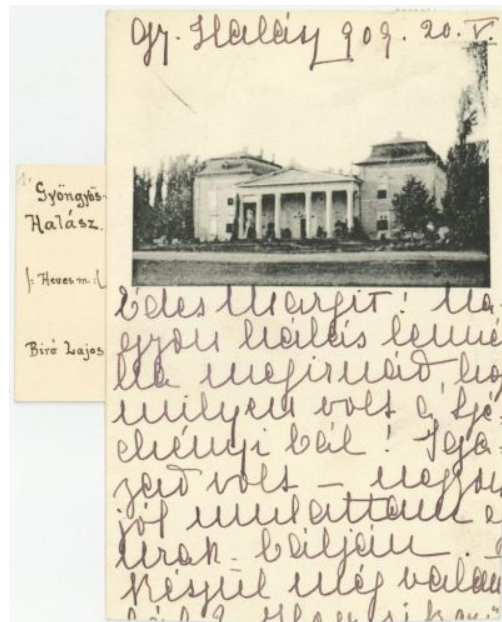 Gy. Halász 909. 20. V.
1.
Gyöngyös-
Halász.
/: Heves m :/
Biró Lajos
Édes Margit! Na-
gyon hálás lenné
ha megirnád, ho
milyen volt a Szé-
chényi bál! Iga-
zad volt – nagyon
jól mulattam a
urak-bálján.
Készül még valam